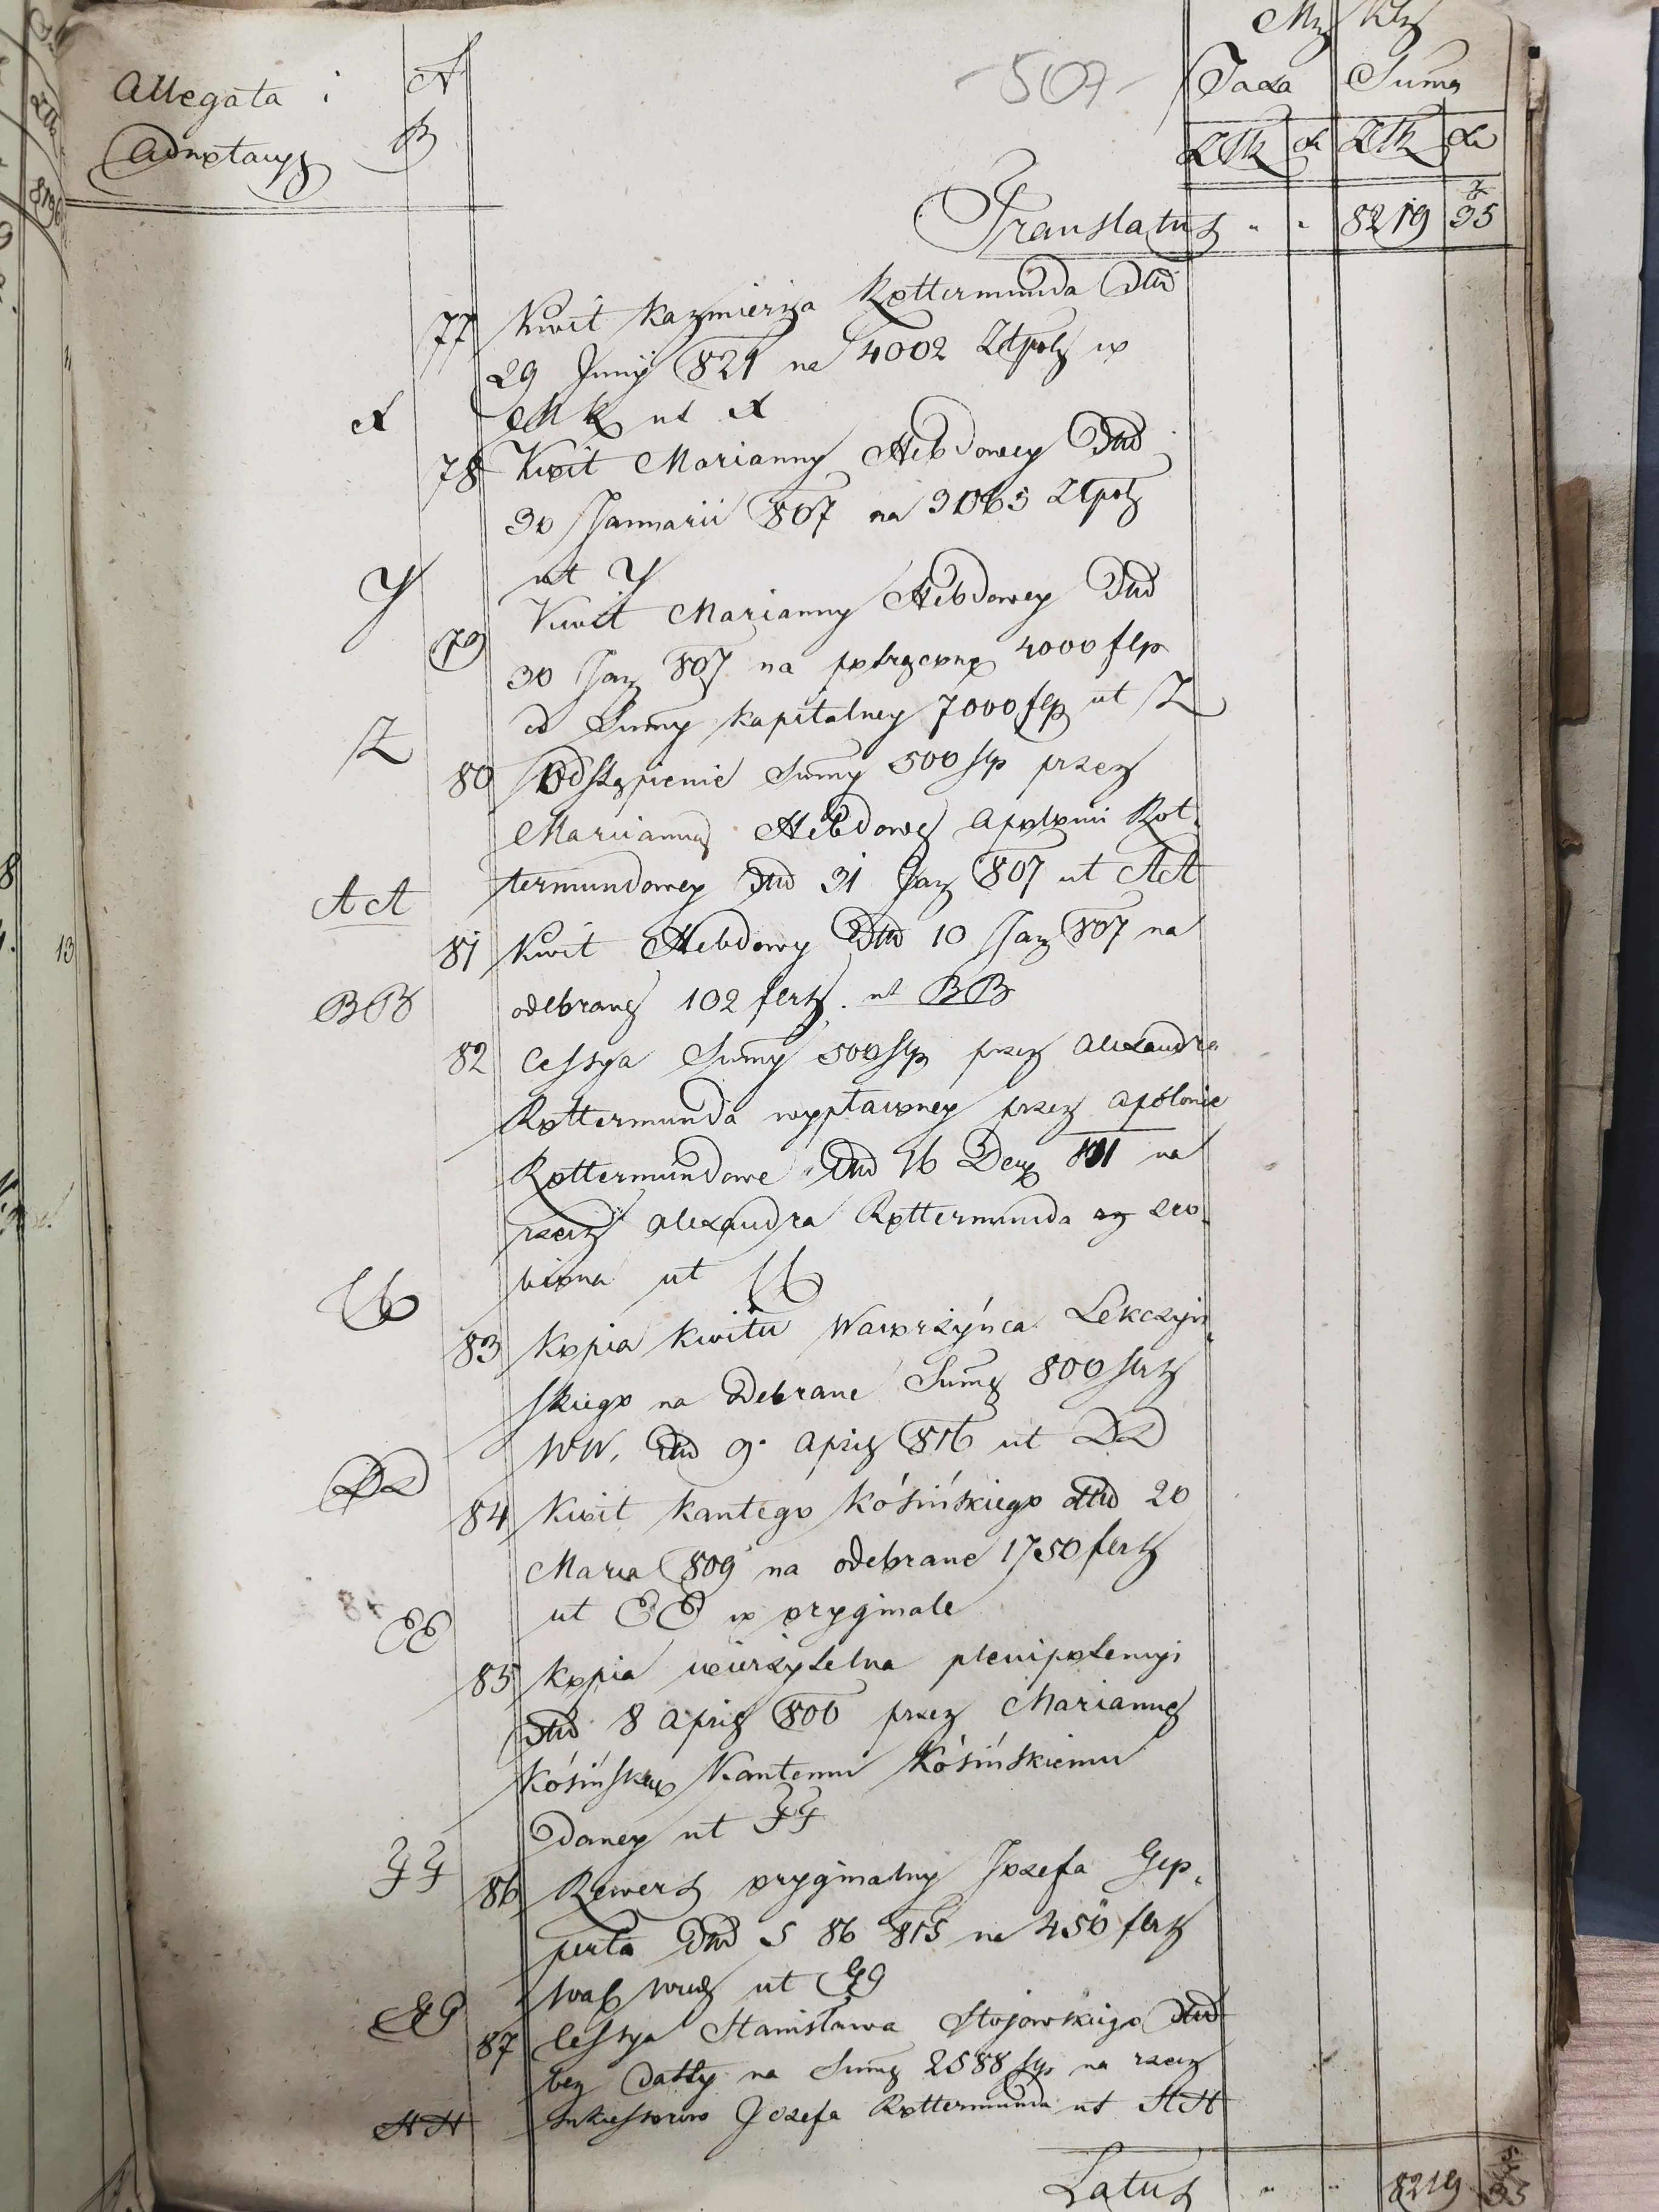 - 507 -
Allegata i
Adnotacye
N
B
Taxa Suma
ZłR xr ZłR xr
Translatus " " 8219 35
77 Kwit Kazmierza Rottermunda dtto
29 Juny 821 na 4002 Złpolz w
MK ut X
X
78 Kwit Marianny Hebdowey dtto
30 Januarii 807 na 3063 Złpolz
ut Y
Y
79 Kwit Marianny Hebdowey dtto
30 Jan 807 na potrącone 4000 flp
z Sumy kapitalney 7000 flp ut Z
Z
80 Odstąpienie Sumy 500 flp przez
Mariannę Hebdowę Apolonii Rot-
termundowey dtto 31 Jan 807 ut AA
AA
81 Kwit Hebdowy dtto 10 Jan 807 na
odebrane 102 flrh. ut BB
BB
82 Cessya Sumy 500 flp przez Alexandra
Rottermunda wypłaconey przez Apolonie
Rottermundowe dtto 16 Dec 811 na
rzecz Alexandra Rottermunda zro-
biona ut CC
CC
83 Kopia Kwitu Wawrzyńca Lekczyń-
skiego na odebrane Sumę 800 flrh
WW. dtto 9. April 816 ut DD
DD
84 Kwit Kantego Kósińskiego dtto 20
Marca 809 na odebrane 1750 flrh
ut EE w oryginale
EE
85 Kopia wierzytelna plenipotencyi
dtto 8 April 806 przez Mariannę
Kósińską Kantemu Kósińskiemu
daney ut FF
FF
86 Rewers oryginalny Jozefa Gep-
perta dtto 5 86 815 na 450 flrh
ut GG
GG
87 Cessya Stanisława Stojowskiego dtto
bez datty na Sumę 2588 flp na rzecz
sukcessorow Jozefa Rottermunda ut HH
HH
Latus " " 8219 35